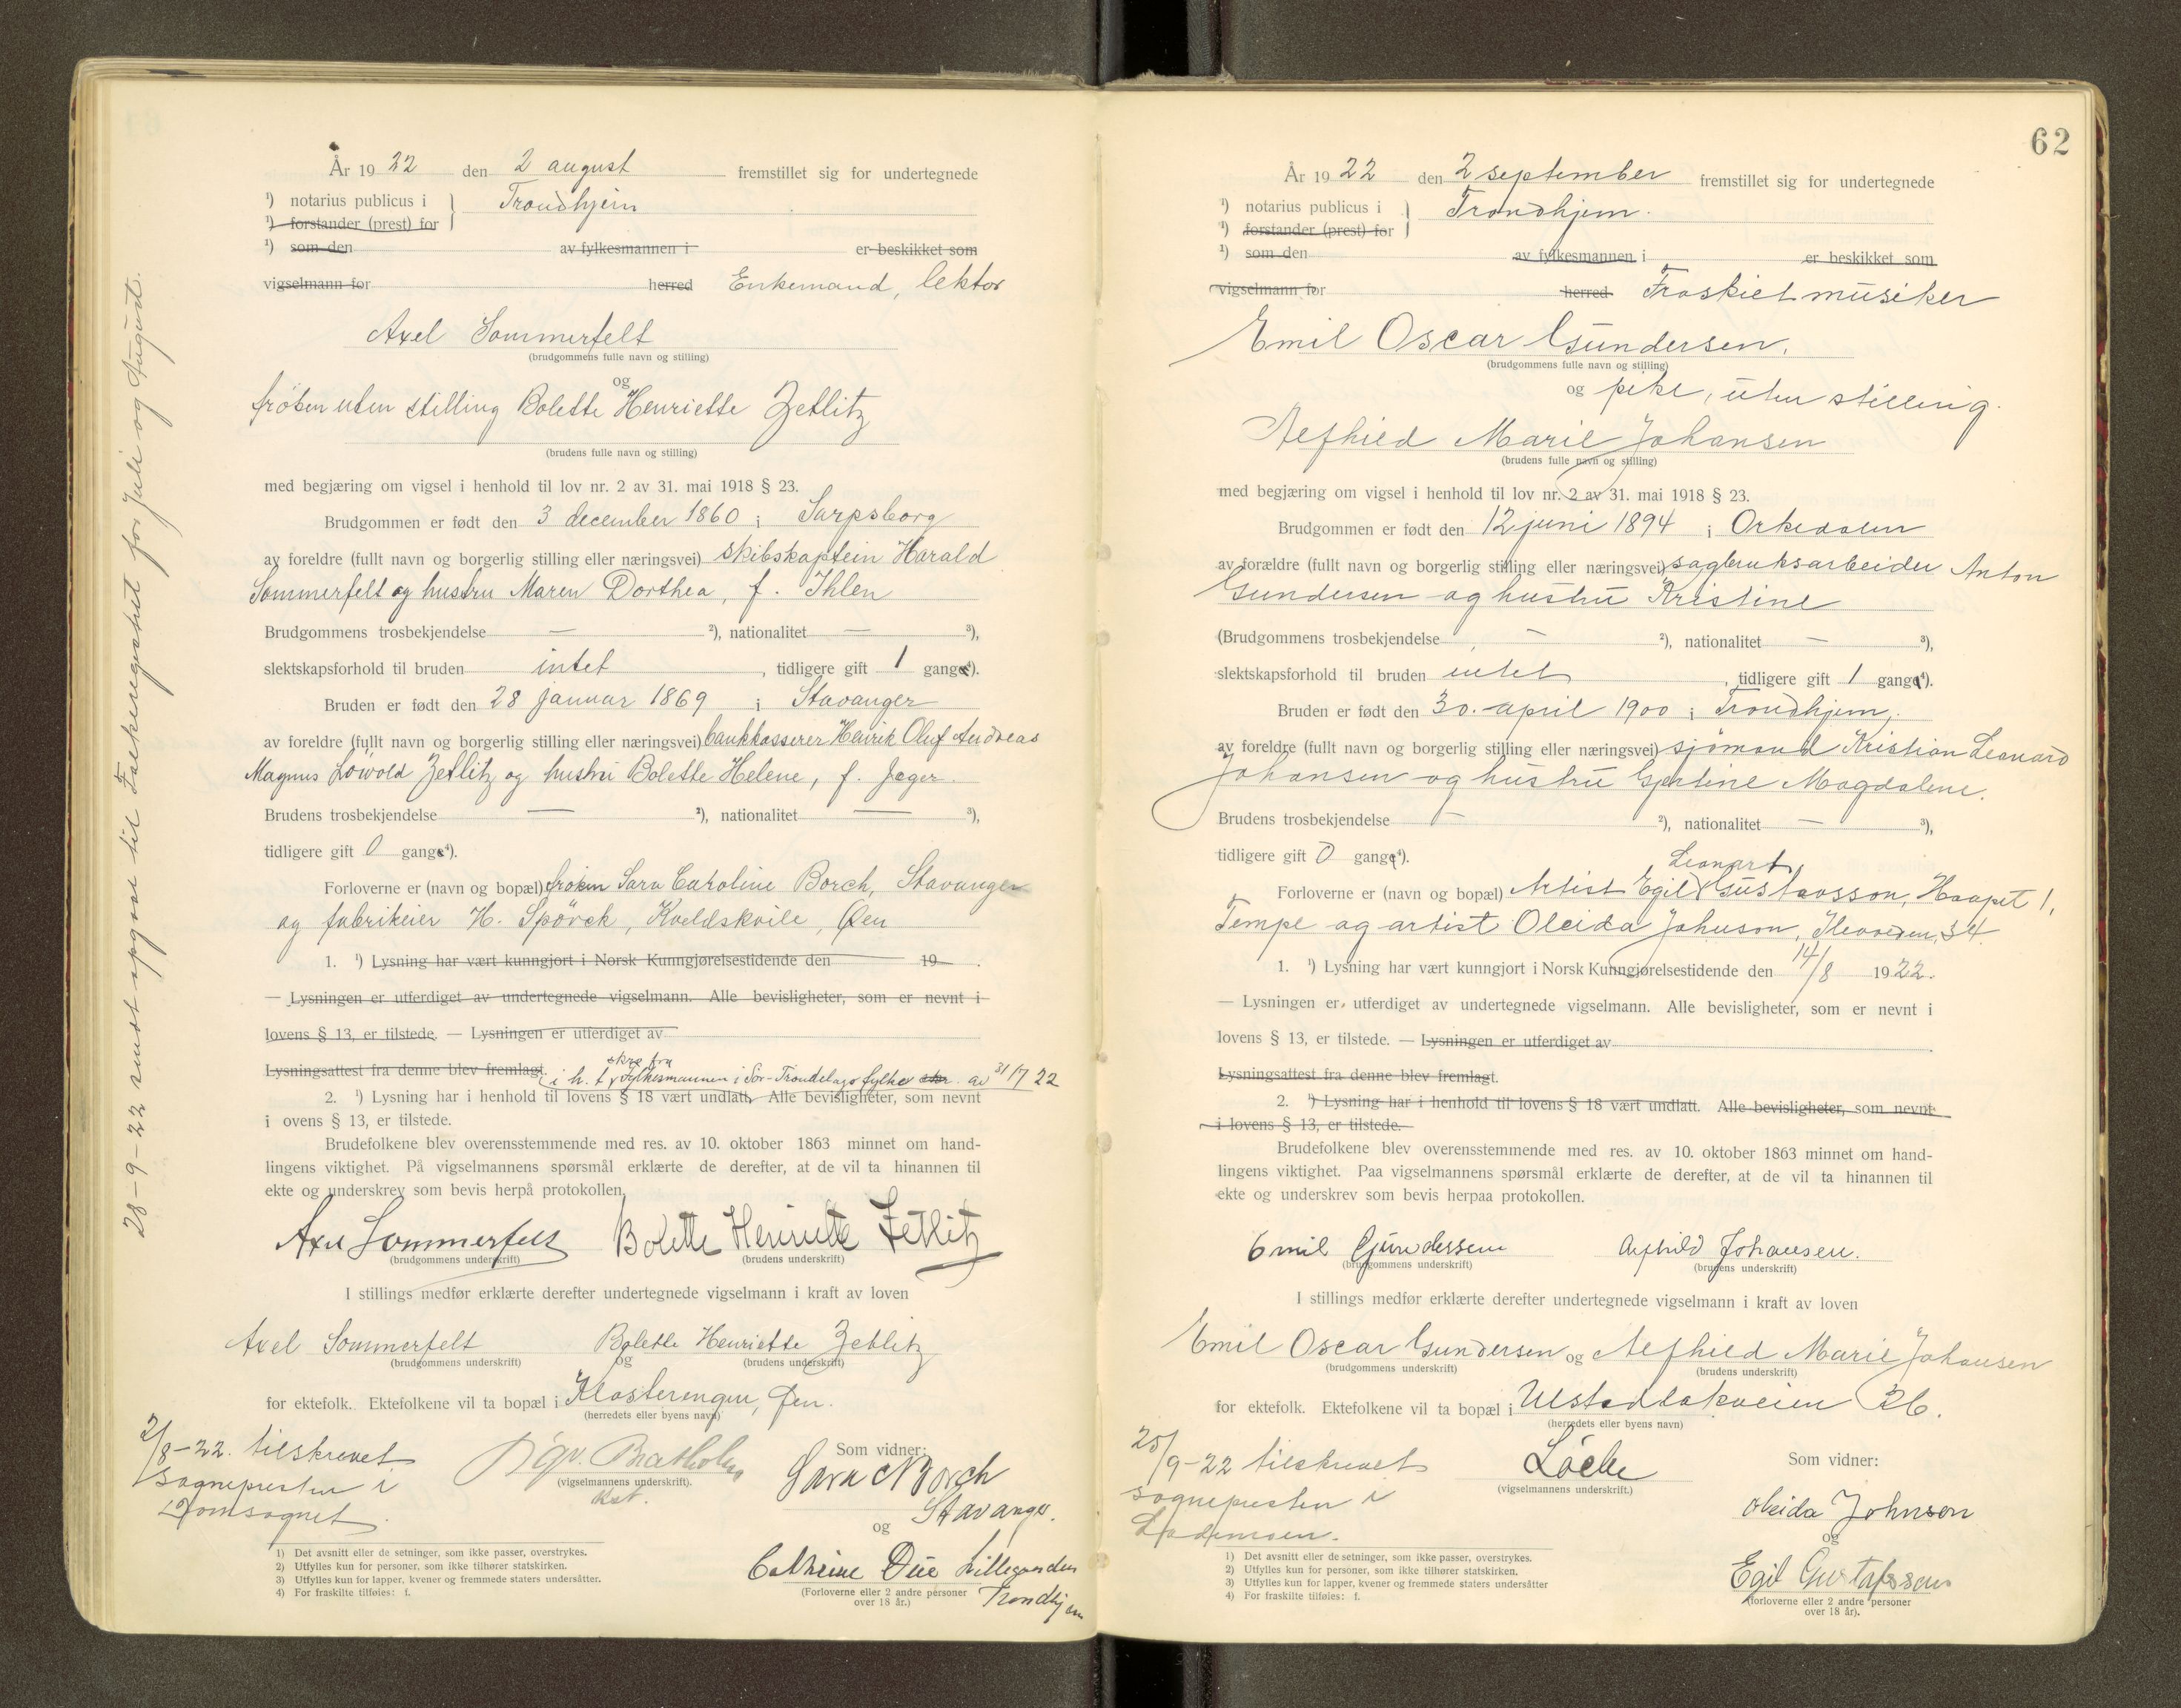 År 19 22 den 2 august fremstillet sig for undertegnede
¹) notarius publicus i } Trondhjem
¹) forstander (prest) for
¹) som den av fylkesmannen i er beskikket som
vigselmann for herred Enkemand, lektor
Axel Sommerfelt
(brudgommens fulle navn og stilling)
og
frøken uten stilling Bolette Henriette Zetlitz
(brudens fulle navn og stilling)
med begjæring om vigsel i henhold til lov nr. 2 av 31. mai 1918 § 23.
Brudgommen er født den 3 december 1860 i Sarpsborg
av foreldre (fullt navn og borgerlig stilling eller næringsvei) skibskaptein Harald
Sommerfelt og hustru Maren Dorthea, f. Ihlen
Brudgommens trosbekjendelse — ²), nationalitet — ³),
slektskapsforhold til bruden intet, tidligere gift 1 gange⁴).
Bruden er født den 28 januar 1869 i Stavanger
av foreldre (fullt navn og borgerlig stilling eller næringsvei) bankkasserer Henrik Oluf Andreas
Magnus Løwold Zetlitz og hustru Bolette Helene, f. Jæger.
Brudens trosbekjendelse — ²), nationalitet — ³),
tidligere gift 0 gange⁴).
Forloverne er (navn og bopæl) frøken Sara Caroline Borch, Stavanger
og fabrikeier H. Spörck, Kveldskvile, Øen
1. ¹) Lysning har vært kunngjort i Norsk Kunngjørelsestidende den 19 .
— Lysningen er utferdiget av undertegnede vigselmann. Alle bevisligheter, som er nevnt i
lovens § 13, er tilstede. — Lysningen er utferdiget av
skr. fra
Lysningsattest fra denne blev fremlagt. i h. t. Fylkesmannen i Sør-Trøndelags fylke av 31/7 22
2. ¹) Lysning har i henhold til lovens § 18 vært undlatt, Alle bevisligheter, som nevnt
i ovens § 13, er tilstede.
Brudefolkene blev overensstemmende med res. av 10. oktober 1863 minnet om hand-
lingens viktighet. På vigselmannens spørsmål erklærte de derefter, at de vil ta hinannen til
ekte og underskrev som bevis herpå protokollen.
Axel Sommerfelt Bolette Henriette Zetlitz
(brudgommens underskrift) (brudens underskrift)
I stillings medfør erklærte derefter undertegnede vigselmann i kraft av loven
Axel Sommerfelt og Bolette Henriette Zetlitz
(brudgommens underskrift) (brudens underskrift)
for ektefolk. Ektefolkene vil ta bopæl i Klosterengen, Øen.
(herredets eller byens navn)
2/8-22. tilskrevet
sognepresten i
Domsognet.
Sigv. Bratholm
(vigselmannens underskrift).
kst.
Som vidner:
Sara N Borch
Stavanger.
og
Cathrine Due Lillegaarden
Trondhjem
(Forloverne eller 2 andre personer
over 18 år.)
1) Det avsnitt eller de setninger, som ikke passer, overstrykes.
2) Utfylles kun for personer, som ikke tilhører statskirken.
3) Utfylles kun for lapper, kvener og fremmede staters undersåtter.
4) For fraskilte tilføies: f.
28-9-22 sendt opgave til Folkeregistret for juli og August.
62
År 19 22 den 2 september fremstillet sig for undertegnede
¹) notarius publicus i } Trondhjem.
¹) forstander (prest) for
¹) som den av fylkesmannen i er beskikket som
vigselmann for herred Fraskilt musiker
Emil Oscar Gundersen.
(brudgommens fulle navn og stilling)
og pike, uten stilling.
Alfhild Marie Johansen
(brudens fulle navn og stilling)
med begjæring om vigsel i henhold til lov nr. 2 av 31. mai 1918 § 23.
Brudgommen er født den 12 juni 1894 i Orkedalen
av forældre (fullt navn og borgerlig stilling eller næringsvei) sagbruksarbeider Anton
Gundersen og hustru Kristine
(Brudgommens trosbekjendelse — ²), nationalitet — ³),
slektskapsforhold til bruden intet, tidligere gift 1 gange⁴).
Bruden er født den 30. april 1900 i Trondhjem,
av foreldre (fullt navn og borgerlig stilling eller næringsvei) sjømand Kristian Leonard
Johansen og hustru Gjertine Magdalene.
Brudens trosbekjendelse — ²), nationalitet — ³),
tidligere gift 0 gange⁴).
Leonart
Forloverne er (navn og bopæl) Artist Egil Gustavsson, Haapet 1,
Tempe og artist Oleida Johnson, Ilevolden 34.
1. ¹) Lysning har vært kunngjort i Norsk Kunngjørelsestidende den 14/8 1922.
— Lysningen er utferdiget av undertegnede vigselmann. Alle bevisligheter, som er nevnt i
lovens § 13, er tilstede. — Lysningen er utferdiget av
Lysningsattest fra denne blev fremlagt.
2. ¹) Lysning har i henhold til lovens § 18 vært undlatt. Alle bevisligheter, som nevnt
i lovens § 13, er tilstede.
Brudefolkene blev overensstemmende med res. av 10. oktober 1863 minnet om hand-
lingens viktighet. Paa vigselmannens spørsmål erklærte de derefter, at de vil ta hinannen til
ekte og underskrev som bevis herpaa protokollen.
Emil Gundersen Alfhild Johansen.
(brudgommens underskrift) (brudens underskrift)
I stillings medfør erklærte derefter undertegnede vigselmann i kraft av loven
Emil Oscar Gundersen og Alfhild Marie Johansen
(brudgommens underskrift) (brudens underskrift)
for ektefolk. Ektefolkene vil ta bopæl i Ulstadløkveien 26.
(herredets eller byens navn)
25/9-22 tilskrevet
sognepresten i
Lademoen.
Löcke
(vigselmannens underskrift.)
Som vidner:
Oleida Johnson
og
Egil Gustafsson
(forloverne eller 2 andre personer
over 18 år).
1) Det avsnitt eller de setninger, som ikke passer, overstrykes.
2) Utfylles kun for personer, som ikke tilhører statskirken.
3) Utfylles kun for lapper, kvener og fremmede staters undersåtter
4) For fraskilte tilføies: f.